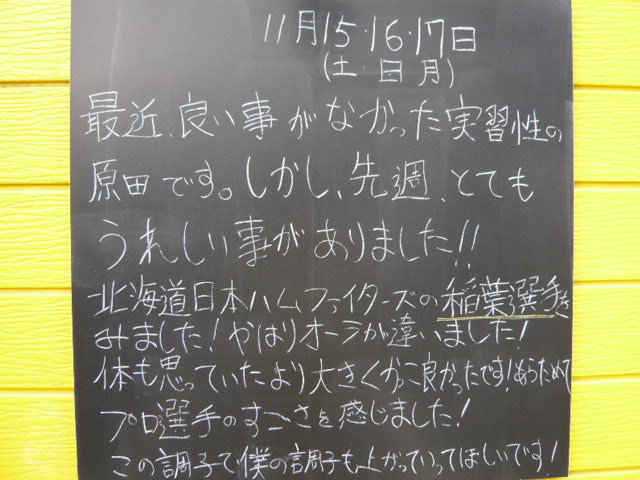 11月15・16・17日
(土・日・月)
最近、良い事がなかった実習性の
原田です。しかし、先週、とても
うれしい事がありました!!
北海道日本ハムファイターズの稲葉選手を
みました!やはりオーラが違いました!
体も思っていたより大きくかっこ良かったです!あらためて
プロ選手のすごさを感じました!
この調子で僕の調子も上がっていってほしいです!